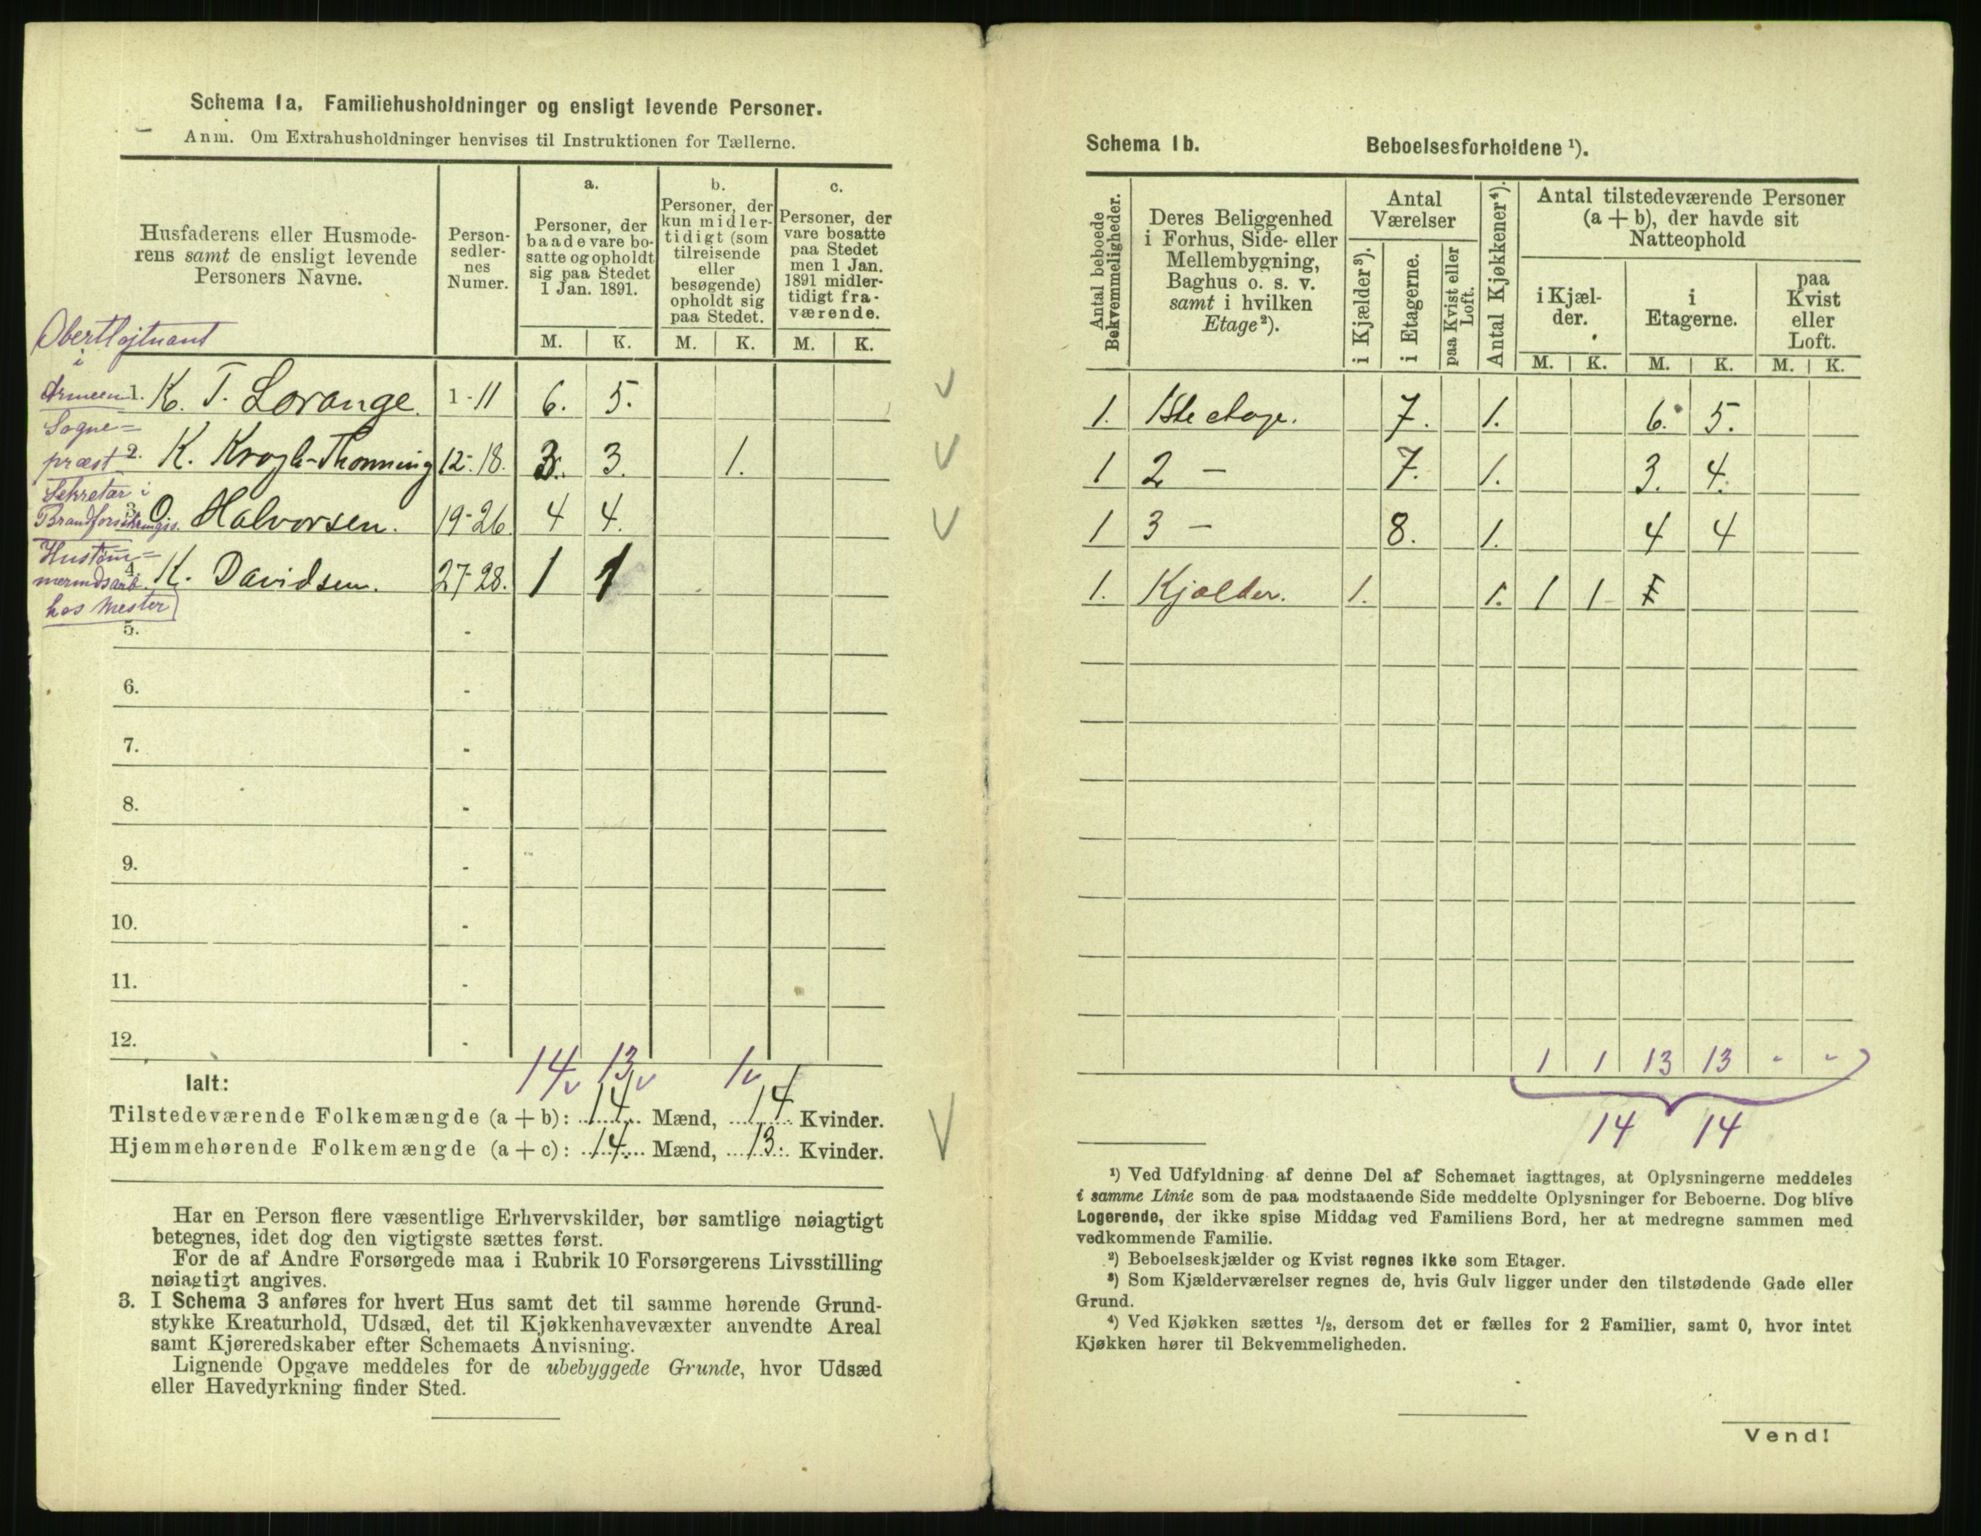 Schema 1a. Familiehusholdninger og ensligt levende Personer.
Anm. Om Extrahusholdninger henvises til Instruktionen for Tællerne.
Husfaderens eller Husmode-
rens samt de ensligt levende
Personers Navne.
Person-
sedler-
nes
Numer.
a.
Personer, der
baade vare bo-
satte og opholdt
sig paa Stedet
1 Jan. 1891.
b.
Personer, der
kun midler-
tidigt (som
tilreisende
eller
besøgende)
opholdt sig
paa Stedet.
c.
Personer, der
vare bosatte
paa Stedet
men 1 Jan.
1891 midler-
tidigt fra-
værende.
M. K. M. K. M. K.
Oberstløjtnant
i
Armeen 1. K. T. Lorange. 1-11 6. 5.
Sogne=
præst 2. K. Krogh-Thonning 12-18. 3. 3. 1.
Sekretær i
Brandforsikringss. 3. O. Halvorsen. 19-26. 4 4.
Hustøm=
mermdsarb. 4. K. Davidsen. 27-28. 1 1
hos Mester
5. -
6. -
7. -
8. -
9. -
10. -
11. -
12. -
14 13 1
Ialt:
Tilstedeværende Folkemængde (a + b): 14 Mænd, 14 Kvinder.
Hjemmehørende Folkemængde (a + c): 14. Mænd, 13. Kvinder.
Har en Person flere væsentlige Erhvervskilder, bør samtlige nøiagtigt
betegnes, idet dog den vigtigste sættes først.
For de af Andre Forsørgede maa i Rubrik 10 Forsørgerens Livsstilling
nøiagtigt angives.
3. I Schema 3 anføres for hvert Hus samt det til samme hørende Grund-
stykke Kreaturhold, Udsæd, det til Kjøkkenhavevæxter anvendte Areal
samt Kjøreredskaber efter Schemaets Anvisning.
Lignende Opgave meddeles for de ubebyggede Grunde, hvor Udsæd
eller Havedyrkning finder Sted.
Schema 1b. Beboelsesforholdene ¹).
Antal beboede
Bekvemmeligheder.
Deres Beliggenhed
i Forhus, Side- eller
Mellembygning,
Baghus o. s. v.
samt i hvilken
Etage²).
Antal
Værelser
i Kjælder³).
i Etagerne.
paa Kvist eller
Loft.
Antal Kjøkkener⁴).
Antal tilstedeværende Personer
(a + b), der havde sit
Natteophold
i Kjæl-
der.
i
Etagerne.
paa
Kvist
eller
Loft.
M. K. M. K. M. K.
1. 1ste etage. 7. 1. 6. 5.
1 2 - 7. 1. 3. 4.
1 3 - 8. 1. 4 4
1. Kjælder. 1. 1. 1 1
1 1 13 13 - -
14 14
¹) Ved Udfyldning af denne Del af Schemaet iagttages, at Oplysningerne meddeles
i samme Linie som de paa modstaaende Side meddelte Oplysninger for Beboerne. Dog blive
Logerende, der ikke spise Middag ved Familiens Bord, her at medregne sammen med
vedkommende Familie.
²) Beboelseskjælder og Kvist regnes ikke som Etager.
³) Som Kjælderværelser regnes de, hvis Gulv ligger under den tilstødende Gade eller
Grund.
⁴) Ved Kjøkken sættes ½, dersom det er fælles for 2 Familier, samt 0, hvor intet
Kjøkken hører til Bekvemmeligheden.
Vend!